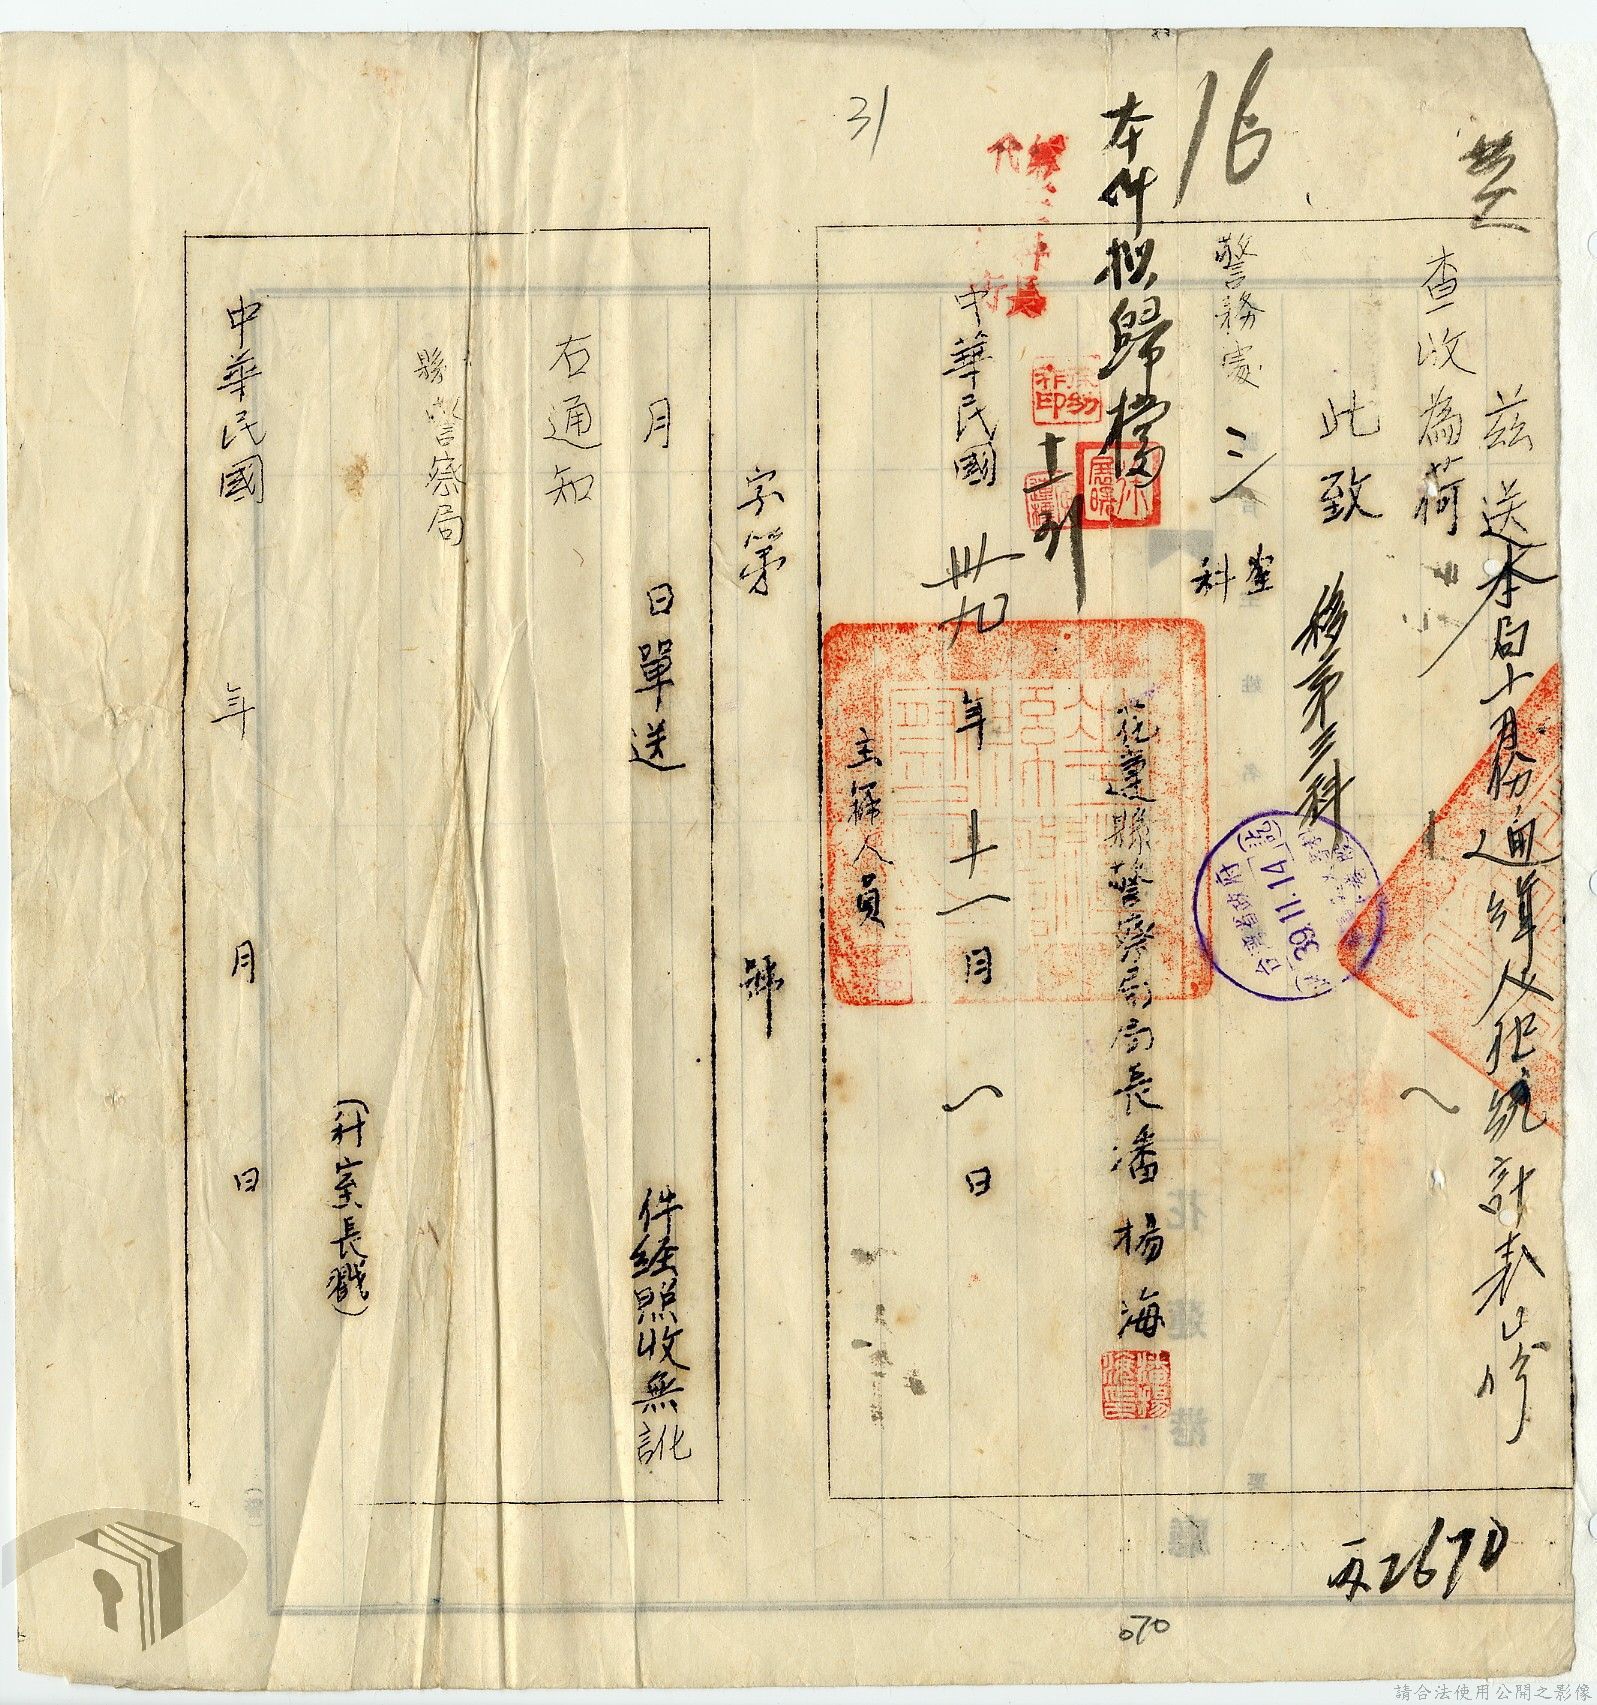 茲送本局十月份通緝人犯統計表山份
查收為荷
此致
移第三科
警務處 三 室科
16
本件擬歸檔
十一
花蓮縣警察局局長潘楊海
中華民國 卅九 年 十一 月 八 日
主辦人員
31
台灣省政府
39.11.14
字第 號
月 日單送 件經照收無訛
右通知
縣警察局
(科室長戳)
中華民國 年 月 日
2670
070
花蓮港廳
姓名
請合法使用公開之影像